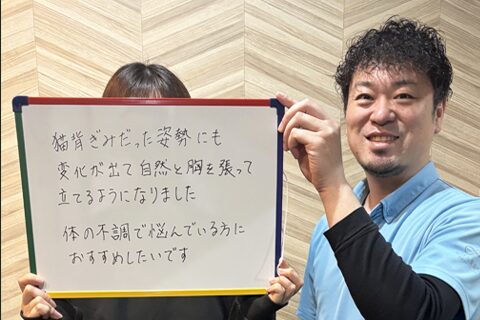 猫背ぎみだった姿勢にも
変化が出て自然と胸を張って
立てるようになりました
体の不調で悩んでいる方に
おすすめしたいです